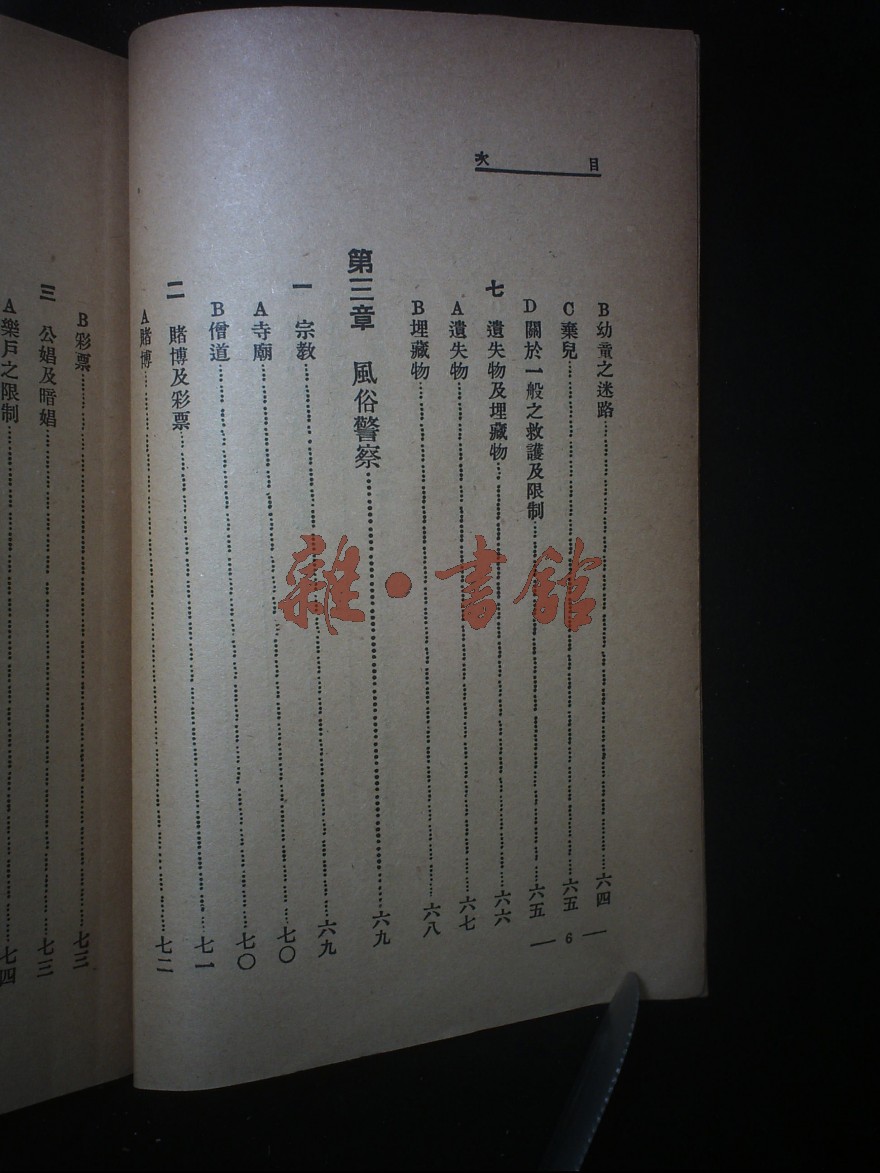 目次
B幼童之迷路……六四
C棄兒……六五
D關於一般之救護及限制……六五
七 遺失物及埋藏物……六六
A遺失物……六七
B埋藏物……六八
第三章 風俗警察……六九
一 宗教……六九
A寺廟……七〇
B僧道……七〇
二 賭博及彩票……七一
A賭博……七二
— 6 —
B彩票……七三
三 公娼及暗娼……七三
A樂戶之限制……七四
雜·書館